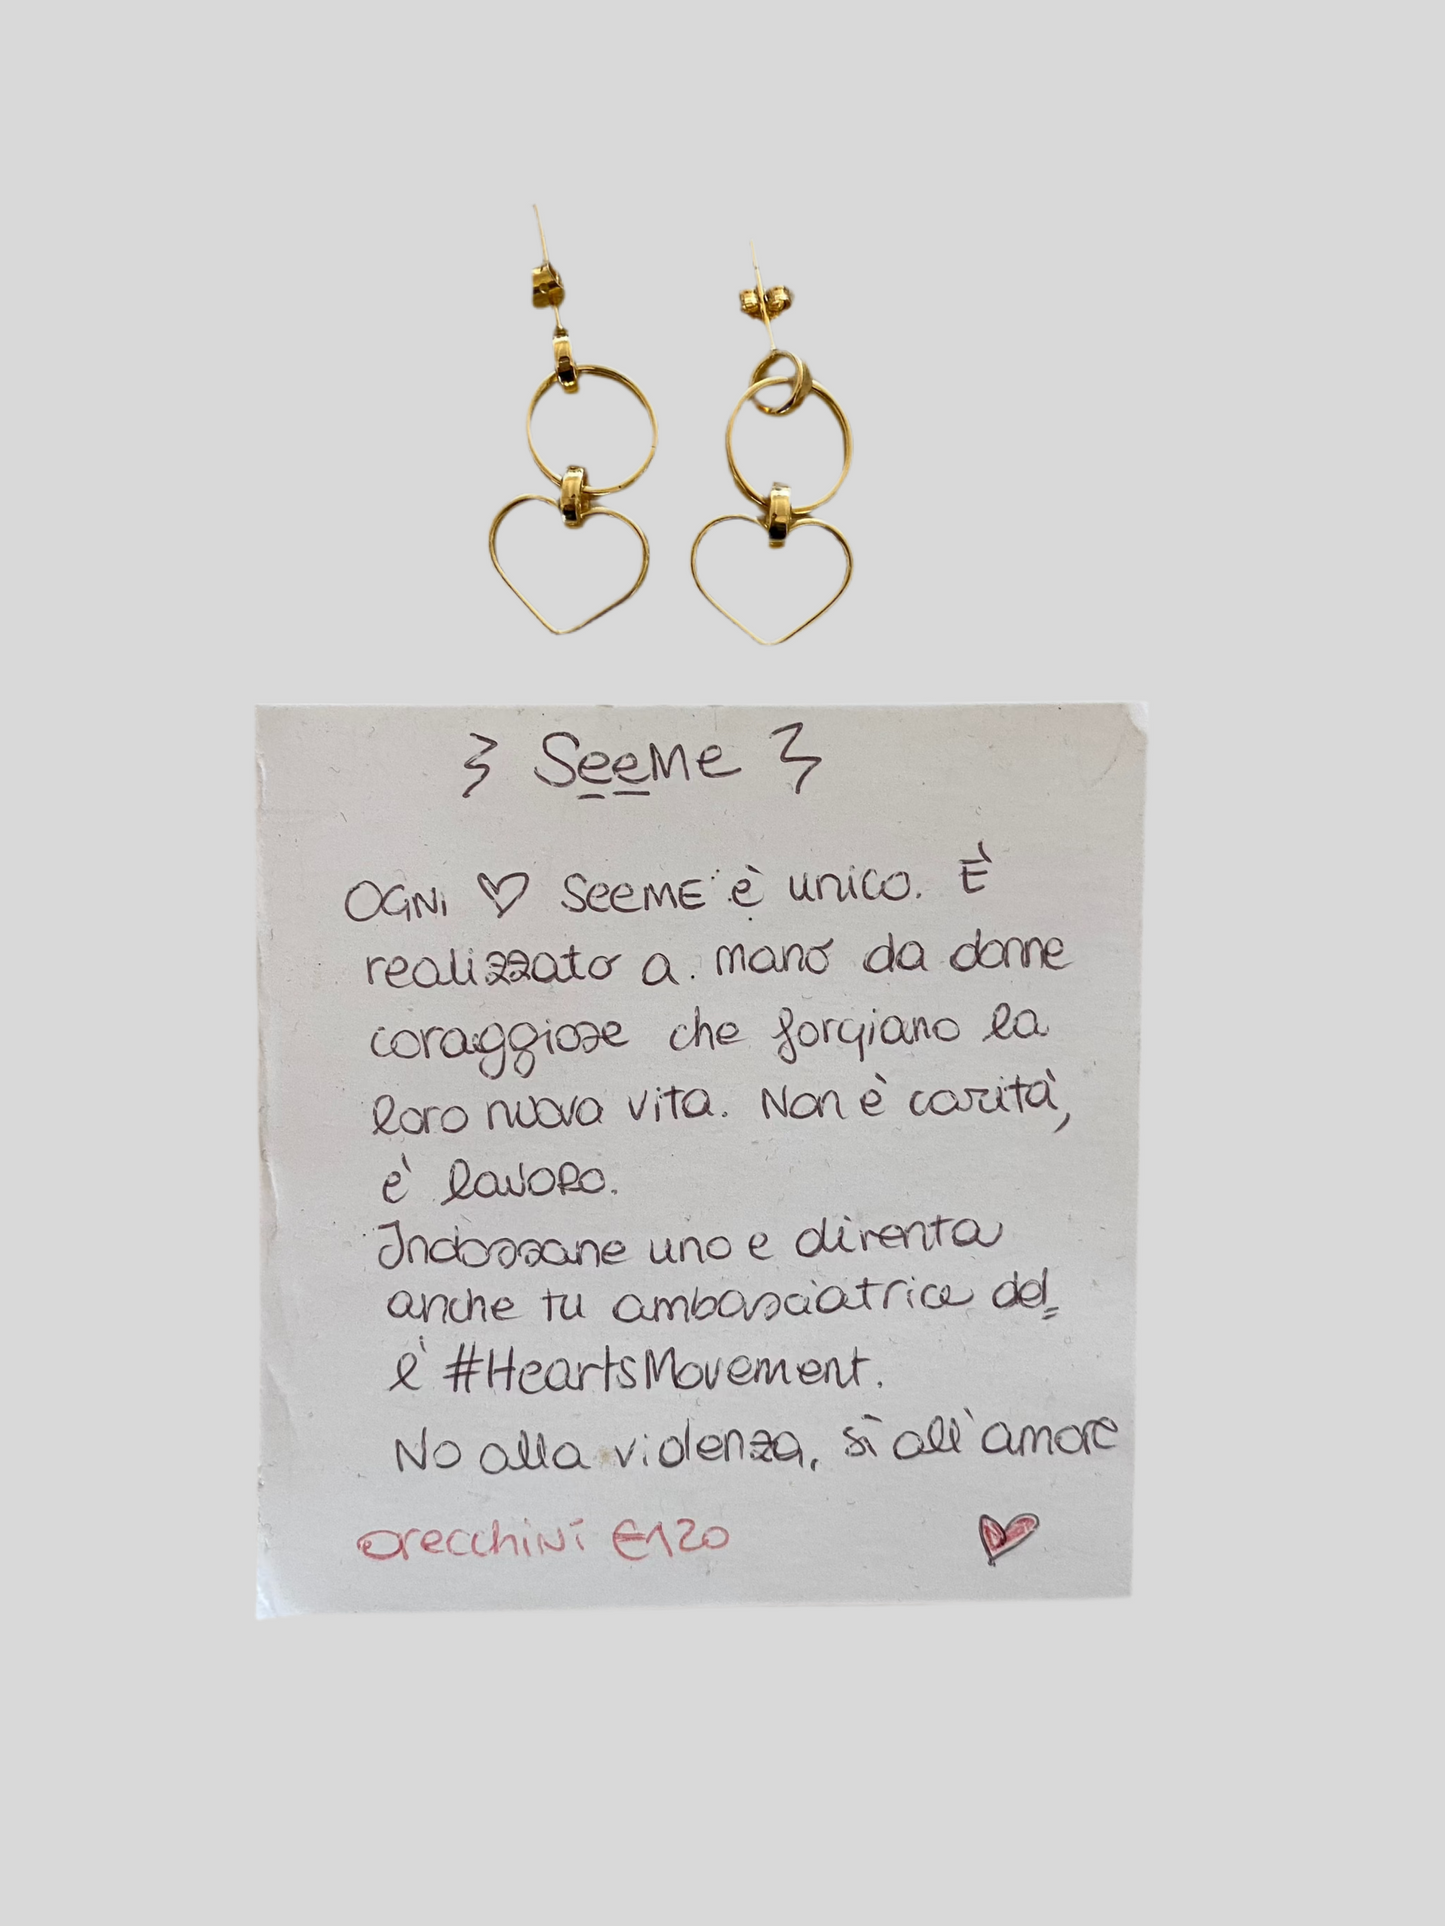 SeeMe
OGNI ♡ SEEME è unico. È
realizzato a mano da donne
coraggiose che forgiano la
loro nuova vita. Non è carità,
è lavoro.
Indossane uno e diventa
anche tu ambasciatrice del=
l' #HeartsMovement.
No alla violenza, sì all'amore
orecchini €120